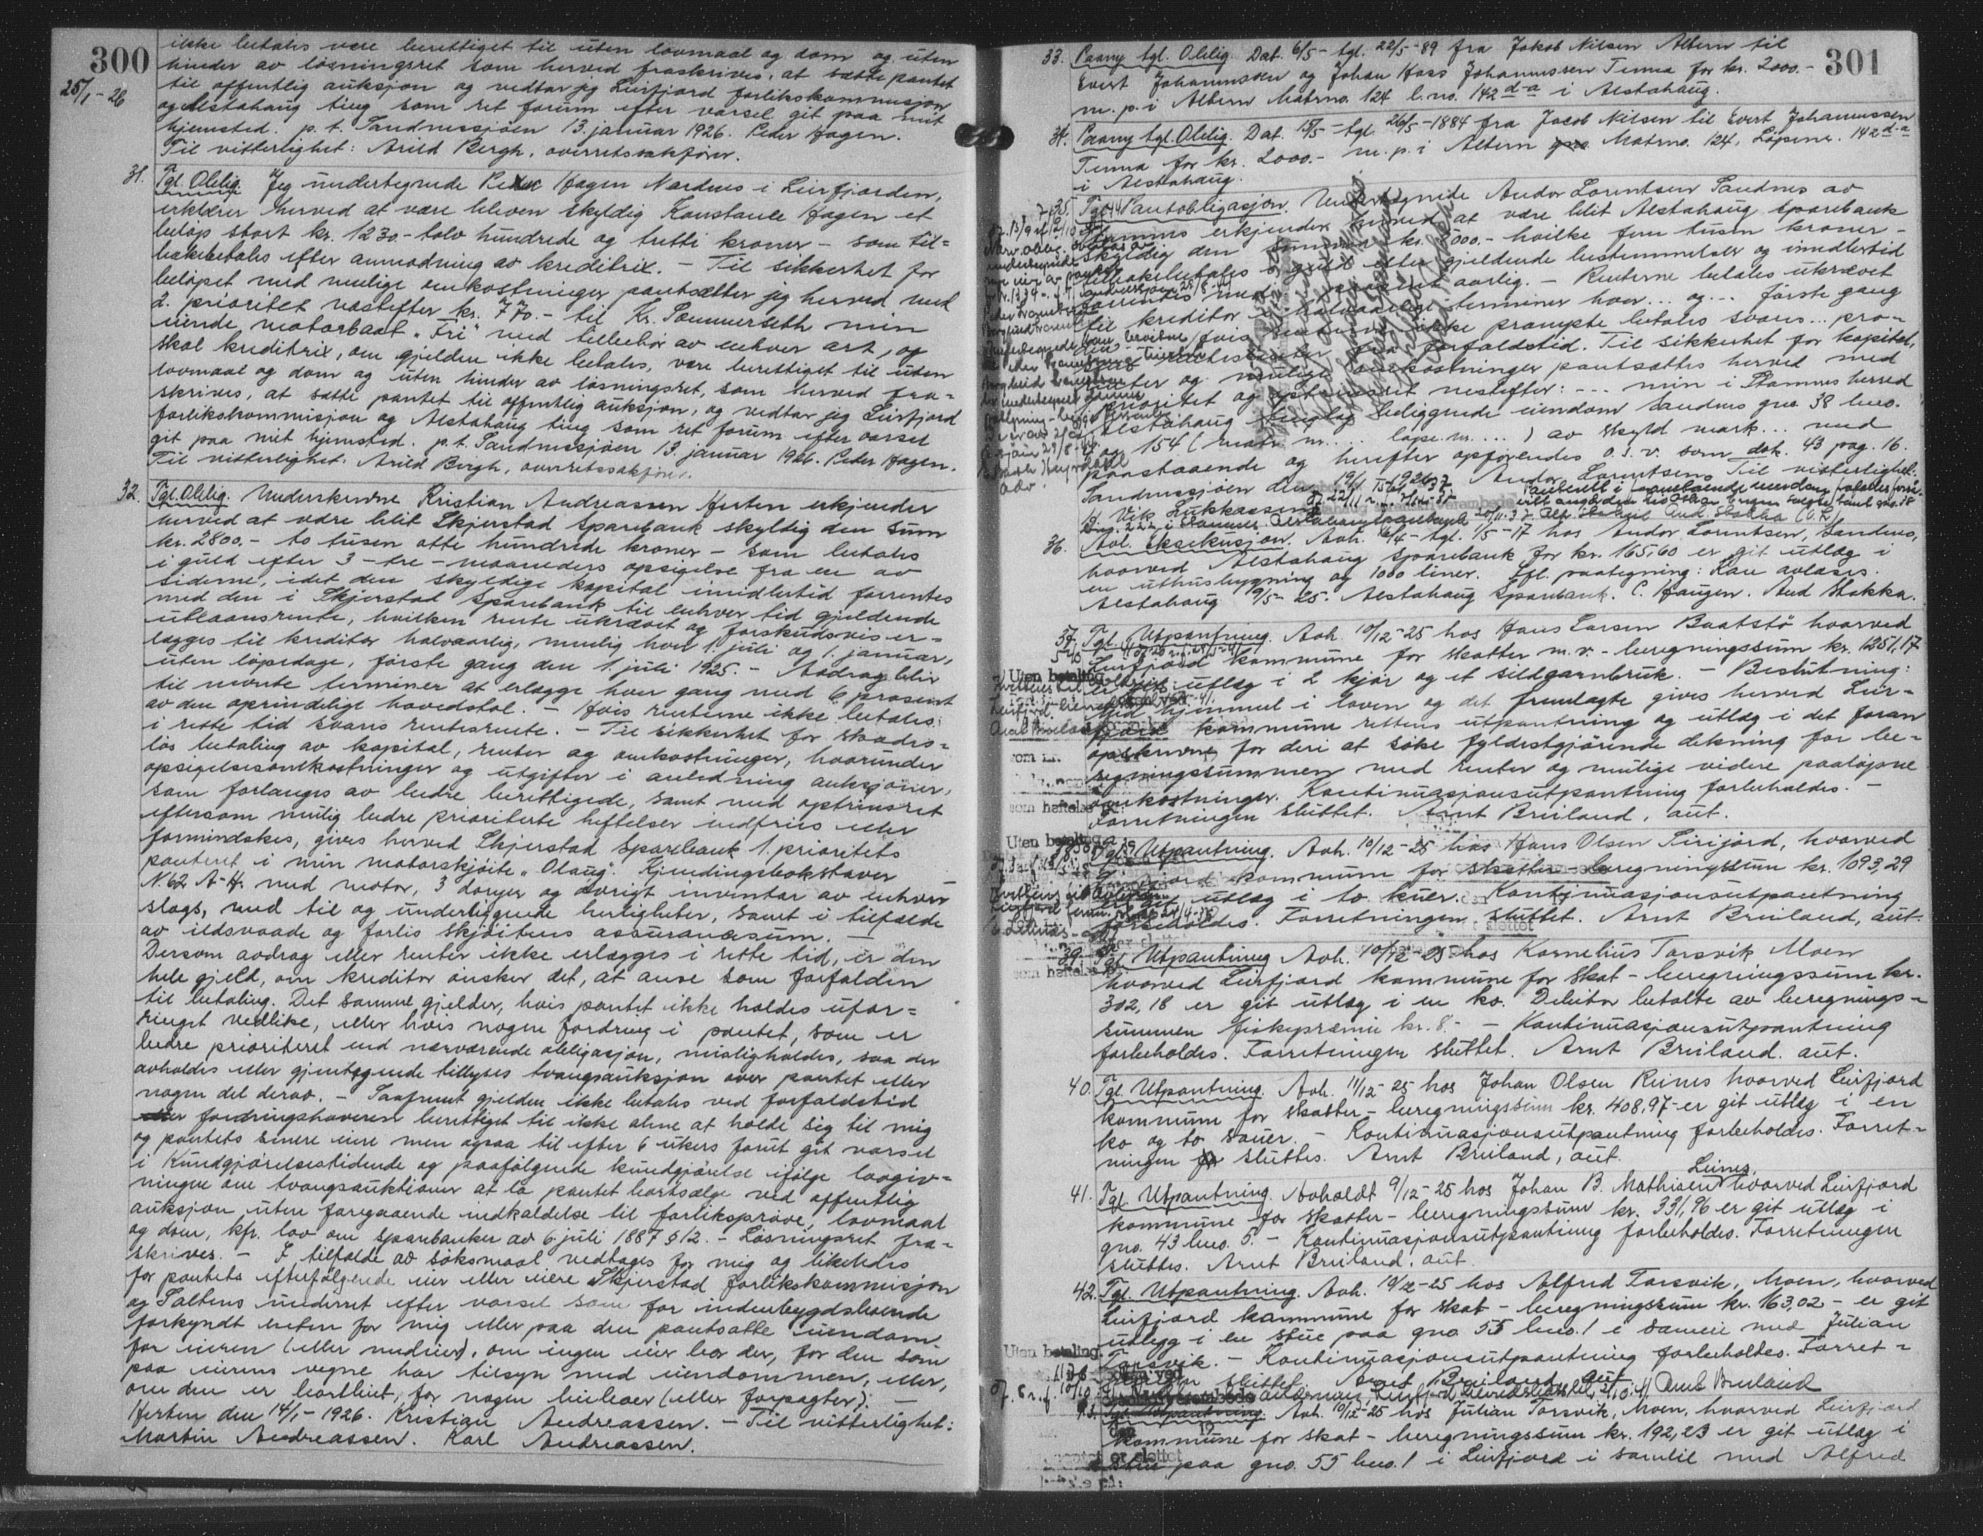 300
25/1-26
ikke betales være berettiget til uten lovmaal og dom og uten
hinder av løsningsret som herved fraskrives, at sætte pantet
til offentlig auksjon og vedtar jeg Leirfjord forlikskommisjon
og Alstahaug ting som ret forum efter varsel git paa mit
hjemsted. p.t. Sandnessjøen 13. januar 1926. Peder Hagen.
Til vitterlighet: Arild Bergh, overretssakfører.
31. Tgl. Oblig. Jeg undertegnede Peder Hagen Nardnes i Leirfjorden,
erklærer herved at være bleven skyldig Konstance Hagen et
beløp stort kr. 1230 - tolv hundrede og tretti kroner - som til-
bakebetales efter anmodning av kreditrix. - Til sikkerhet for
beløpet med mulige omkostninger pantsætter jeg herved med
2. prioritet næstefter kr. 770.- til Kr. Sommerseth min
eiende motorbaat "Fri" med tilbehør av enhver art, og
skal kreditrix, om gjelden ikke betales, være berettiget til uten
lovmaal og dom og uten hinder av løsningsret, som herved fra-
skrives, at sætte pantet til offentlig auksjon, og vedtar jeg Leirfjord
forlikskommisjon og Alstahaug ting som ret forum efter varsel
git paa mit hjemsted. p.t. Sandnessjøen 13. januar 1926. Peder Hagen.
Til vitterlighet. Arild Bergh, overretssakfører.
32. Tgl. Oblig. Underskrevne Kristian Andreassen Herten erkjender
herved at være blit Skjerstad Sparebank skyldig den sum
kr. 2800.- to tusen otte hundrede kroner - som betales
i guld efter 3 - tre - maaneders opsigelse fra en av
siderne, idet den skyldige kapital imidlertid forrentes
med den i Skjerstad Sparebank til enhver tid gjeldende
utlaansrente, hvilken rente ukrævet og forskudsvis er-
lægges til kreditor halvaarlig, nemlig hver 1. juli og 1. januar,
uten løpedage, første gang den 1. juli 1925. - Avdrag blir
til nævnte terminer at erlægge hver gang med 6 prosent
av den oprindelige hovedstol. - Hvis renterne ikke betales
i rette tid svares rentesrente. - Til sikkerhet for skades-
løs betaling av kapital, renter og omkostninger, hvorunder
opsigelsesomkostninger og utgifter i anledning auksjoner,
som forlanges av bedre berettigede, samt med optrinsret
eftersom mulig bedre prioriterte heftelser indfries eller
formindskes, gives herved Skjerstad Sparebank 1. prioritets
panteret i min motorskjøite "Olaug". Kjendingsbokstaver
N.62 A-H. med motor, 3 doryer og øvrigt inventar av enhver
slags, med til og underliggende herligheter, samt i tilfælde
av ildsvaade og forlis skjøitens assuransesum. -
Dersom avdrag eller renter ikke erlægges i rette tid, er den
hele gjeld, om kreditor ønsker det, at anse som forfalden
til betaling. Det samme gjelder, hvis pantet ikke holdes ufor-
ringet vedlike, eller hvis nogen fordring i pantet, som er
bedre prioriteret end nærværende obligasjon, misligholdes, saa der
avholdes eller gjentagende tillyses tvangsauksjon over pantet eller
nogen del derav. - Saafremt gjelden ikke betales ved forfaldstid
er fordringshaveren berettiget til ikke alene at holde sig til mig
og pantets senere eiere men ogsaa til efter 6 ukers forut git varsel
i Kundgjørelsestidende og paafølgende kundgjørelse ifølge lovgiv-
ningen om tvangsauktioner at la pantet bortsælge ved offentlig
auksjon uten foregaaende nedkaldelse til forliksprøve, lovmaal
og dom, kfr. lov om sparebanker av 6 juli 1887 § 12. - Løsningsret fra-
skrives. - I tilfælde av søksmaal vedtages for mig og likeledes
for pantets efterfølgende eier eller eiere Skjerstad forlikskommisjon
og Saltens underret efter varsel som for indenbygdsboende
forkyndt enten for mig eller paa den pantsatte eiendom
for eieren (eller medeier), om ingen eier bor der, for den som
paa eierens vegne har tilsyn med eiendommen, eller,
om den er bortleiet, for nogen leieboer (eller forpagter). -
Herten den 14/1-1926. Kristian Andreassen. - Til vitterlighet:
Martin Andreassen. Karl Andreassen.
301
33. Paany tgl. Oblig. Dat. 6/5- tgl. 22/5-89 fra Jakob Nilsen Altern til
Evert Johannessen og Johan Hass Johannessen Tenna for kr. 2000.-
m.p. i Altern Matrno. 124 l.no. 142 d-a i Alstahaug.
34. Paany tgl. Oblig. Dat. 15/5- tgl. 26/5-1884 fra Jacob Nilsen til Evert Johannessen
Tenna for kr. 2000.- m.p. i Altern Matrno. 124, Løpenr. 142 d-a
i Alstahaug.
35. Tgl. Pantobligasjon. Undertegnede Andor Lorentsen Sandnes av
Stamnes erkjender herved at være blit Alstahaug sparebank
skyldig den summen kr. 5000.- hvilke fem tusen kroner -
tilbakebetales i guld efter gjeldende bestemmelser og imidlertid
forrentes med prosent aarlig. - Renterne betales ukrævet
til kreditor i halvaarlige terminer hver ... og ... første gang
den ... hvis renterne ikke prompte betales svares ... pro-
cent rentesrenter fra forfaldstid. Til sikkerhet for kapital,
renter og mulige omkostninger pantsættes herved med
prioritet og optrinsret nestefter: --- min i Stamnes herred
Alstahaug tinglag beliggende eiendom Sandnes gno. 38 bno.
og 154 (matr. nr. ... løpe nr. ...) av skyld mark ... med
paastaaende og herefter opførendes o.s.v. som dok. 43 pag. 16.
Sandnessjøen den 1926. Andor Lorentsen. Til vitterlighet:
H. Vik Lukkassen
36. Avl. eksekusjon. Avh. 16/4- tgl. 1/5-17 hos Andor Lorentsen, Sandnes,
hvorved Alstahaug Sparebank for kr. 165.60 er git utlæg i
en uthusbygning og 1000 liner. Ifl. paategning: Kan avlæses.
Alstahaug 9/5-25. Alstahaug Sparebank. C. Haugen. Aud Stokka.
37. Tgl. Utpantning. Avh. 10/12-25 hos Hans Larsen Baatstø hvorved
Leirfjord kommune for skatter m.v. - beregningssum kr. 1251.17
er git utlæg i 2 kjør og et sildgarnbruk. - Beslutning:
Med hjemmel i loven og det fremlagte gives herved Leir-
fjord kommune rettens utpantning og utlæg i det foran
opskrevne for deri at søke fyldestgjørende dekning for be-
regningssummen med renter og mulige videre paaløpne
omkostninger. Kontinuasjonsutpantning forbeholdes. -
Forretningen sluttet. Arnt Breiland, aut.
38. Tgl. Utpantning. Avh. 10/12-25 hos Hans Olsen Leirjord, hvorved
Leirfjord kommune for skatter - beregningssum kr. 1093,29
er git utlæg i to kuer. Kontinuasjonsutpantning
forbeholdes. Forretningen sluttet. Arnt Breiland, aut.
39. Tgl. Utpantning Avh. 10/12-25 hos Kornelius Torsvik Moen
hvorved Leirfjord kommune for skat - beregningssum kr.
302,18 er git utlæg i en ko. Debitor betalte av beregnings-
summen fiskepræmie kr. 8.- - Kontinuasjonsutpantning
forbeholdes. Forretningen sluttet. Arnt Breiland. aut.
40. Tgl. Utpantning. Avh. 11/12-25 hos Johan Olsen Reines hvorved Leirfjord
kommune for skatter - beregningssum kr. 408,97 - er git utlæg i en
ko og to sauer. - Kontinuasjonsutpantning forbeholdes. Forret-
ningen sluttes. Arnt Breiland, aut.
41. Tgl. Utpantning. Avholdt 9/12-25 hos Johan B. Mathisen Leines hvorved Leirfjord
kommune for skatter - beregningssum kr. 331,96 er git utlæg i
gno. 43 bno. 5. - Kontinuasjonsutpantning forbeholdes. Forretningen
sluttes. Arnt Breiland. aut.
42. Tgl. Utpantning. Avh. 10/12-25 hos Alfred Torsvik, Moen, hvorved
Leirfjord kommune for skat - beregningssum kr. 163,02 - er git
utlegg i en stue paa gno. 55 bno. 1 i sameie med Julian
Torsvik. - Kontinuasjonsutpantning forbeholdes. Forret-
ningen sluttet. Arnt Breiland, aut.
43. Tgl. Utpantning. Avh. 10/12-25 hos Julian Torsvik, Moen, hvorved Leirfjord
kommune for skat - beregningssum kr. 192,23 er git utlæg i
stue paa gno. 55 bno. 1 i Leirfjord i sameie med Alfred